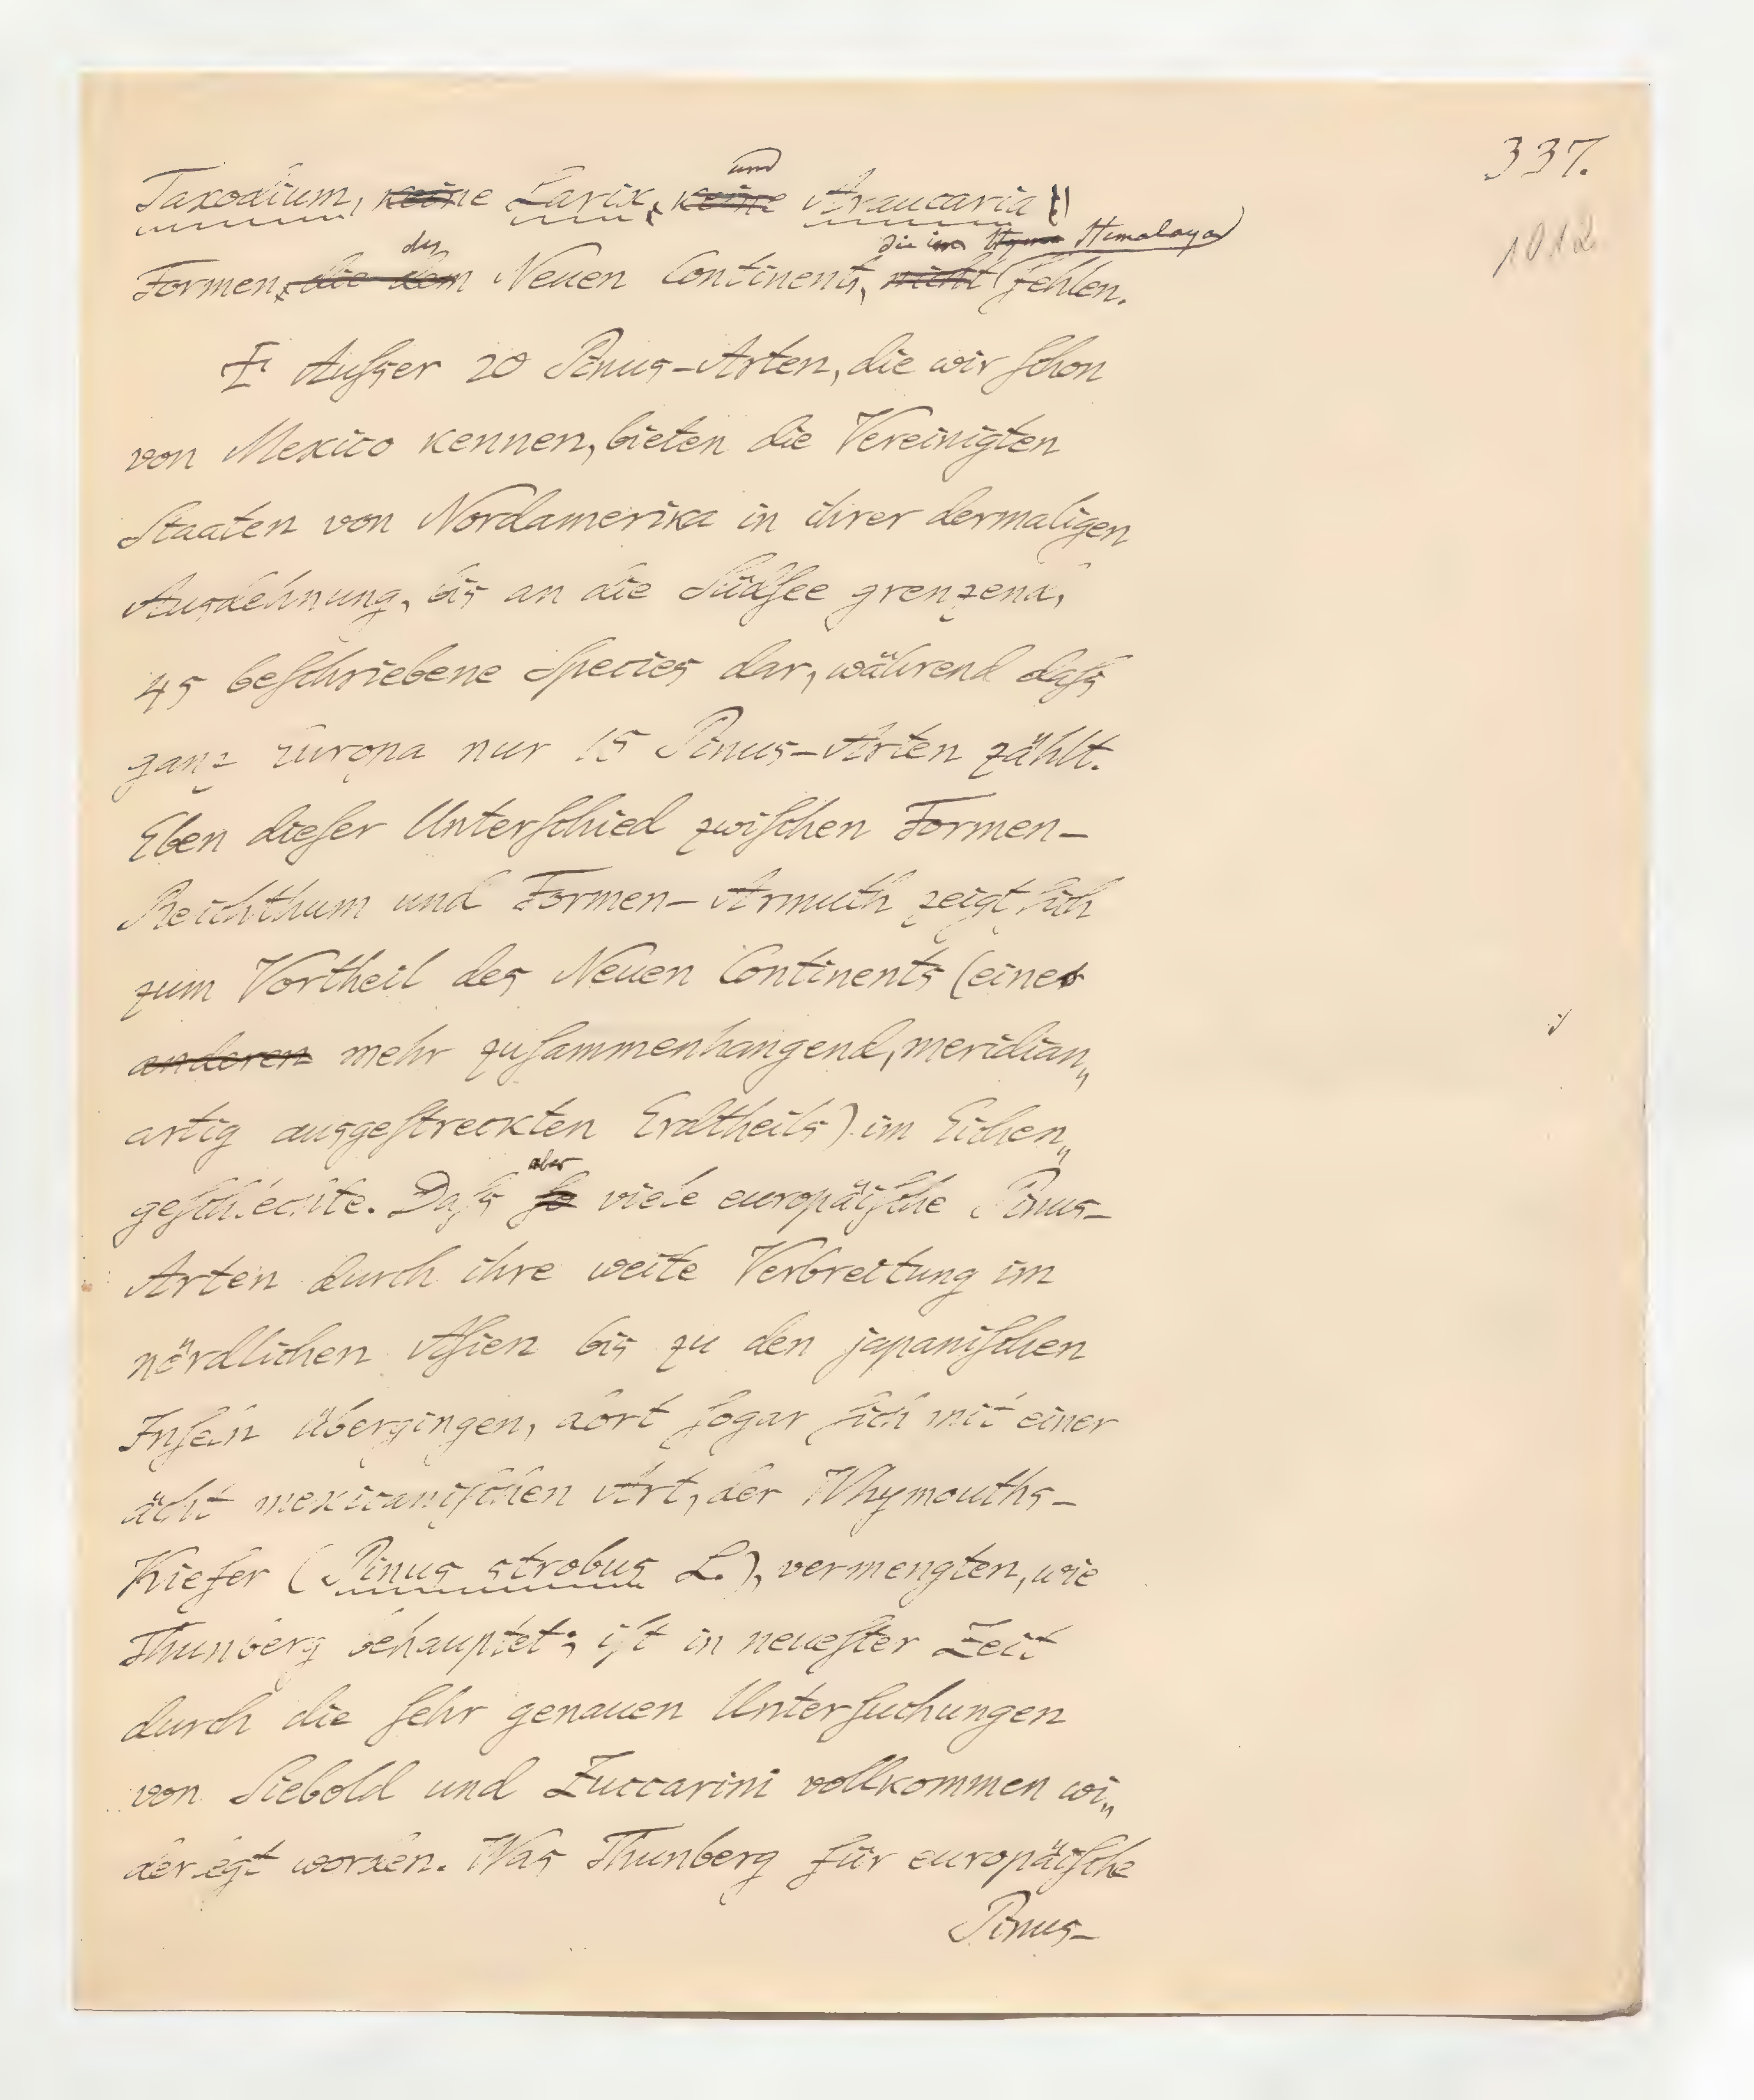 337.
1012
und
Taxodium, keine Larix, keine Araucaria:
des die im Himalaya
Formen, die dem Neuen Continents, nicht fehlen.
Auſser 20 Pinus-Arten, die wir ſchon
von Mexico kennen, bieten die Vereinigten
Staaten von Nordamerika in ihrer dermaligen
Ausdehnung, bis an die Südſee grenzend,
45 beſchriebene Species dar, während daſs
ganz Europa nur 15 Pinus-Arten zählt.
Eben dieſer Unterſchied zwiſchen Formen-
Reichthum und Formen-Armuth zeigt ſich
zum Vortheil des Neuen Continents (eines
anderen mehr zuſammenhangend, meridian„
artig ausgeſtreckten Erdtheils) im Eichen„
aber
geſchlechte. Daſs ſo viele europäiſche Pinus-
Arten durch ihre weite Verbreitung im
nördlichen Aſien bis zu den japaniſchen
Inſeln übergingen, dort ſogar ſich mit einer
ächt mexicaniſchen Art, der Whymouths-
Kiefer (Pinus strobus L.), vermengten, wie
Thunberg behauptet; iſt in neueſter Zeit
durch die ſehr genauen Unterſuchungen
von Siebold und Zuccarini vollkommen wi„
derlegt worden. Was Thunberg für europäiſche
Pinus-